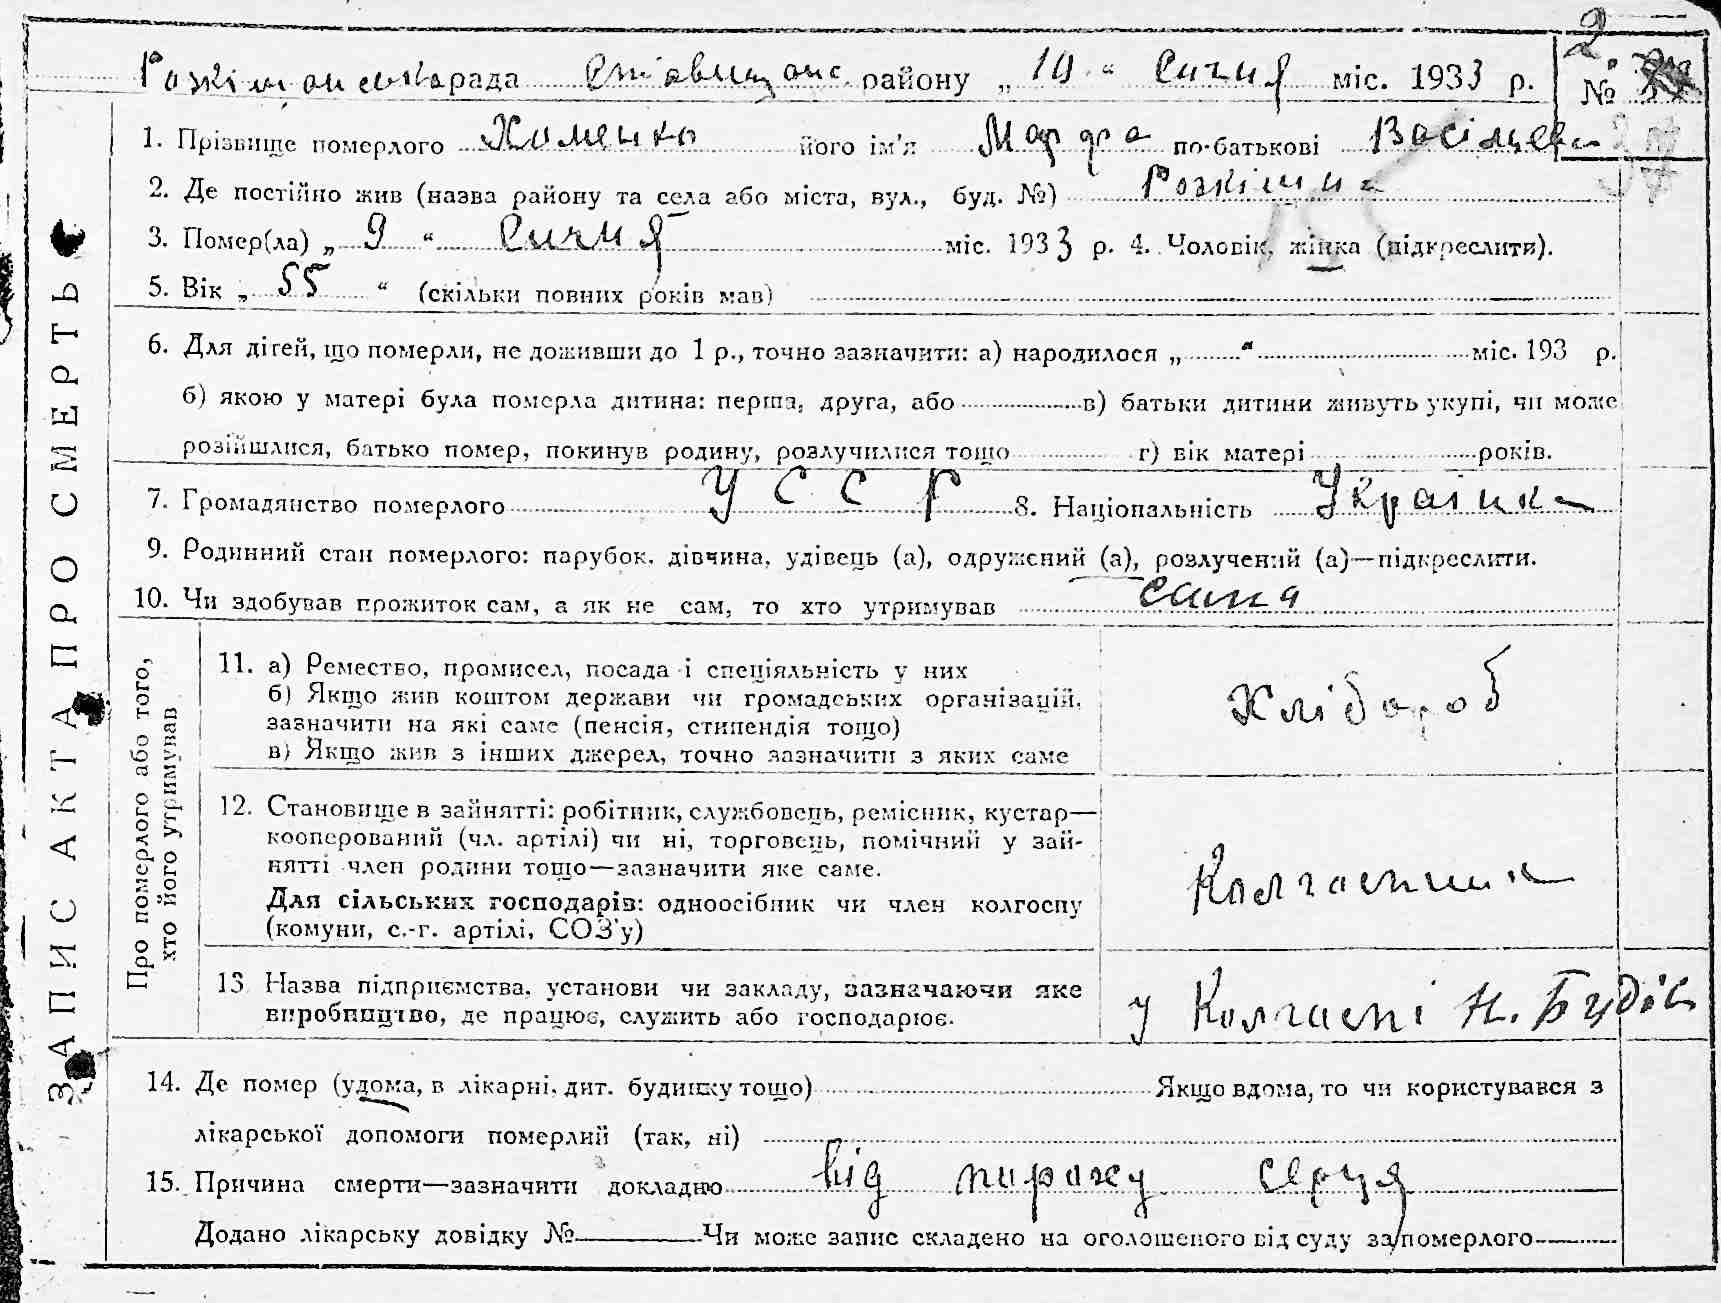 рада Ставищанс. району „ 10 “ Сичня міс. 1933 р. № 2
1. Прізвище померлого Хоменко його ім'я Марфа по-батькові
2. Де постійно жив (назва району та села або міста, вул., буд. №) Розкішна
3. Помер(ла) „ 9 “ Сичня міс. 1933 р. 4. Чоловік, жінка (підкреслити).
5. Вік „ 55 “ (скільки повних років мав)
6. Для дітей, що померли, не доживши до 1 р., точно зазначити: а) народилося „ “ міс. 193 р.
б) якою у матері була померла дитина: перша, друга, або в) батьки дитини живуть укупі, чи може
розійшлися, батько помер, покинув родину, розлучилися тощо г) вік матері років.
7. Громадянство померлого УССР 8. Національність Українка
9. Родинний стан померлого: парубок, дівчина, удівець (а), одружений (а), розлучений (а)—підкреслити.
10. Чи здобував прожиток сам, а як не сам, то хто утримував сама
11. а) Ремество, промисел, посада і спеціяльність у них
б) Якщо жив коштом держави чи громадських організацій,
зазначити на які саме (пенсія, стипендія тощо)
в) Якщо жив з інших джерел, точно зазначити з яких саме
Хлібороб
12. Становище в зайнятті: робітник, службовець, ремісник, кустар—
кооперований (чл. артілі) чи ні, торговець, помічний у зай-
нятті член родини тощо—зазначити яке саме.
Для сільських господарів: одноосібник чи член колгоспу
(комуни, с.-г. артілі, СОЗ'у)
13. Назва підприємства, установи чи закладу, зазначаючи яке
виробництво, де працює, служить або господарює.
у Колгоспі Н. Будів
14. Де помер (удома, в лікарні, дит. будинку тощо) Якщо вдома, то чи користувався з
лікарської допомоги померлий (так, ні)
15. Причина смерти—зазначити докладно від пороку серця
Додано лікарську довідку № Чи може запис складено на оголошеного від суду за померлого
ЗАПИС АКТА ПРО СМЕРТЬ
Про померлого або того,
хто його утримував